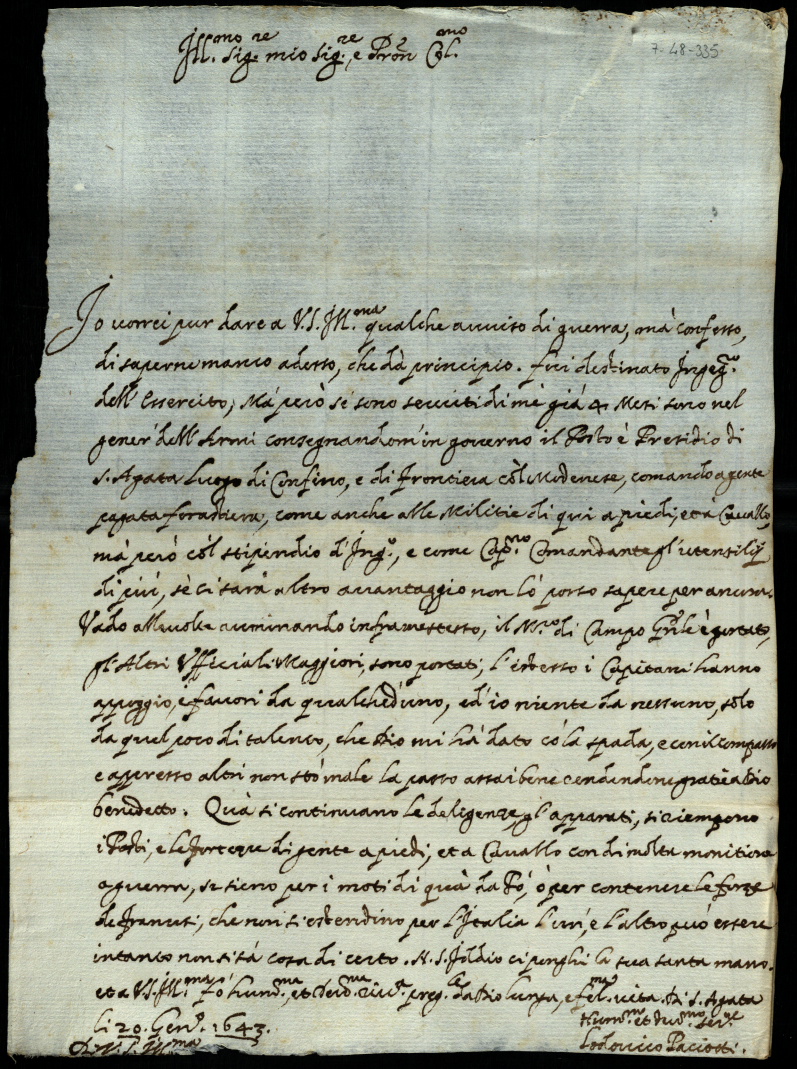 Ill.mo Sig.re mio Sig.re, e Pron Col.mo
7-48-335
Io vorrei pur dare a V.S. Ill.ma qualche avviso di guerra, mà confesso,
di saperne manco adesso, che dà principio. fui destinato Ingeg.ro
dell'Essercito, Mà però sè sono serviti di mè già 4 Mesi sono nel
gener' dell'Armi consegnandom' in governo il Posto è Presidio di
S. Agata Luogo di Confino, e di Frontiera còl Modenese, comando a gente
pagata forastiera, come anche alle Militie di qui a piedi, et à Cavallo,
mà però còl stipendio d'Ing.o, e come Cap.no Comandante gl'utensilij
di più, sè ci sarà altro avantaggio non lò posso sapere per ancora.
Vado alle volte caminando infra me stesso, il M.ro di Campo Gn̄le è portato,
gl'Altri Ufficiali Maggiori, sono portati, l'istesso i Capitani hanno
appoggio, è favori da qualched'uno, ed'io niente da nessuno, sòlo
da quel poco di talento, che Dio mi hà dato cò la spada, e con il Compasso
e appresso altri non stò male la passo assai bene rendendone gratie a Dio
benedetto. Quà si continuano le deligenze, gl'apparati, si riempono
i Posti, e le forteze di gente a piedi, et a Cavallo con di molta monitione
a guerra, se sieno per i moti di quà da Pò, ò per contenere le forze
de Francesi, che non si estendino per l'Italia l'un', e l'altro può essere
intanto non si sà cosa di certo. N. S. Iddio ci ponghi la sua santa mano.
et a V.S. Ill.ma fò hum.ma, et devo.ma riv.a preg.le da Dio lunga, e fel.ma vita. Di S. Agata
li 20. Gen.o 1643.
Hum.mo et Dev.mo Ser.re
D. V. S. Ill.ma
Lodovico Paciotti.